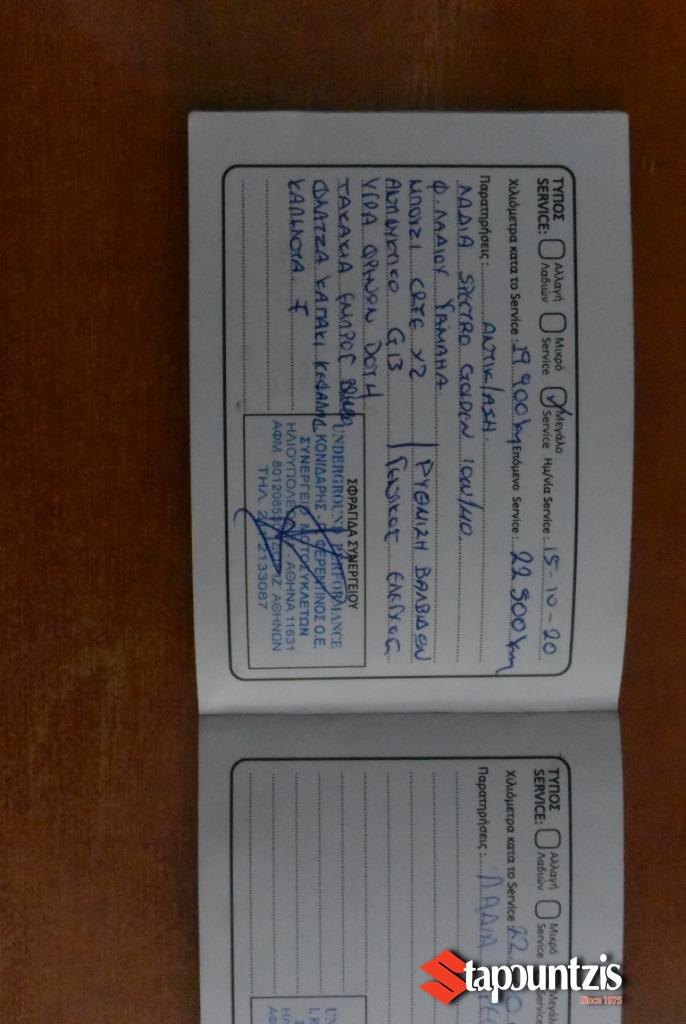 ΤΥΠΟΣ SERVICE: Αλλαγή Λαδιών Μικρό Service Μεγάλο Service Ημ/νία Service: 15-10-20
Χιλιόμετρα κατα το Service: 19.900km Επόμενο Service: 22.900km
Παρατηρήσεις: ΑΝΤΙΚ/ΑΣΗ
ΛΑΔΙΑ SPECTRO GOLDEN 10W/40
Φ. ΛΑΔΙΟΥ YAMAHA
ΜΠΟΥΖΙ CR7E X2 | ΡΥΘΜΙΣΗ ΒΑΛΒΙΔΩΝ
ΑΝΤΙΨΥΚΤΙΚΟ G13 | ΓΕΝΙΚΟΣ ΕΛΕΓΧΟΣ
ΥΓΡΑ ΦΡΕΝΩΝ DOT4
ΤΑΚΑΚΙΑ ΕΜΠΡΟΣ
ΦΛΑΤΖΑ ΚΑΠΑΚΙ ΚΕΦΑΛΗΣ
ΚΑΠΕΛΟΤΑ
ΣΦΡΑΓΙΔΑ ΣΥΝΕΡΓΕΙΟΥ
UNDERGROUND PERFORMANCE
ΚΟΝΙΔΑΡΗΣ - ΦΕΡΕΝΤΙΝΟΣ Ο.Ε.
ΣΥΝΕΡΓΕΙΟ ΜΟΤΟΣΥΚΛΕΤΩΝ
ΑΘΗΝΑ 11631
ΑΘΗΝΩΝ
ΤΗΛ. 2133087
ΤΥΠΟΣ SERVICE: Αλλαγή Λαδιών Μικρό Service
Χιλιόμετρα κατα το Service 22
Παρατηρήσεις: ΛΑΔΙΑ
Stapountzis
Since 1975